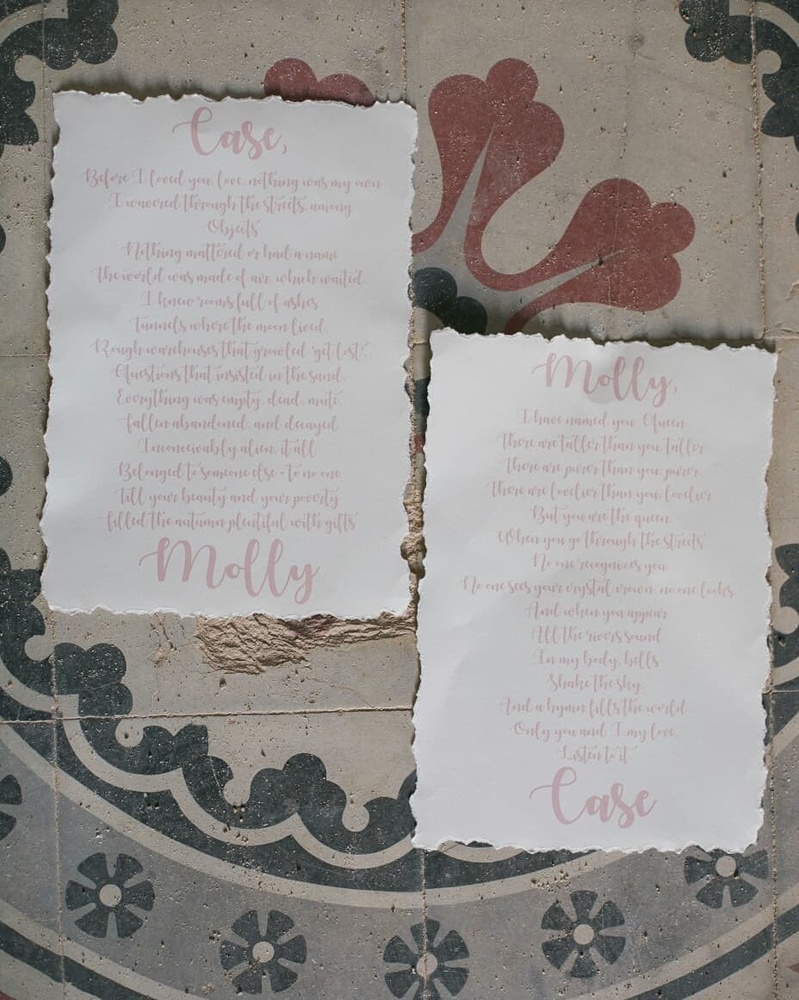 Case,
Before I loved you, love, nothing was my own
I wavered through the streets, among
Objects
Nothing mattered or had a name
the world was made of air, which waited
I knew rooms full of ashes
Tunnels where the moon lived,
Rough warehouses that growled 'get lost',
Questions that insisted in the sand,
Everything was empty, dead, mute,
fallen abandoned, and decayed
Inconceivably alien, it all
Belonged to someone else - to no one
till your beauty and your poverty
filled the autumn plentiful with gifts
Molly
Molly,
I have named you Queen
There are taller than you, taller
There are purer than you, purer
There are lovelier than you, lovelier
But you are the queen
When you go through the streets
No one recognizes you
No one sees your crystal crown, no one looks
And when you appear
All the rivers sound
In my body, bells
Shake the sky,
And a hymn fills the world
Only you and I, my love,
Listen to it
Case